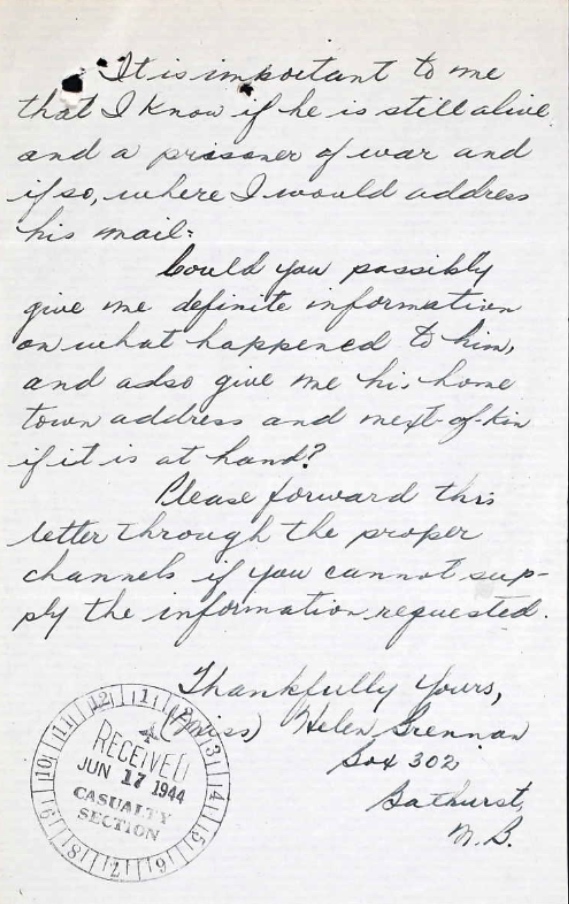 It is important to me
that I know if he is still alive
and a prisoner of war and
if so, where I would address
his mail.
Could you possibly
give me definite information
on what happened to him,
and also give me his home
town address and next-of-kin
if it is at hand?
Please forward this
letter through the proper
channels if you cannot sup-
ply the information requested.
Thankfully Yours,
(Miss) Helen Brennan
Box 302
Bathurst,
N.B.
12 1 2 3 4 5 6 7 8 9 10 11
RECEIVED
JUN 17 1944
CASUALTY
SECTION